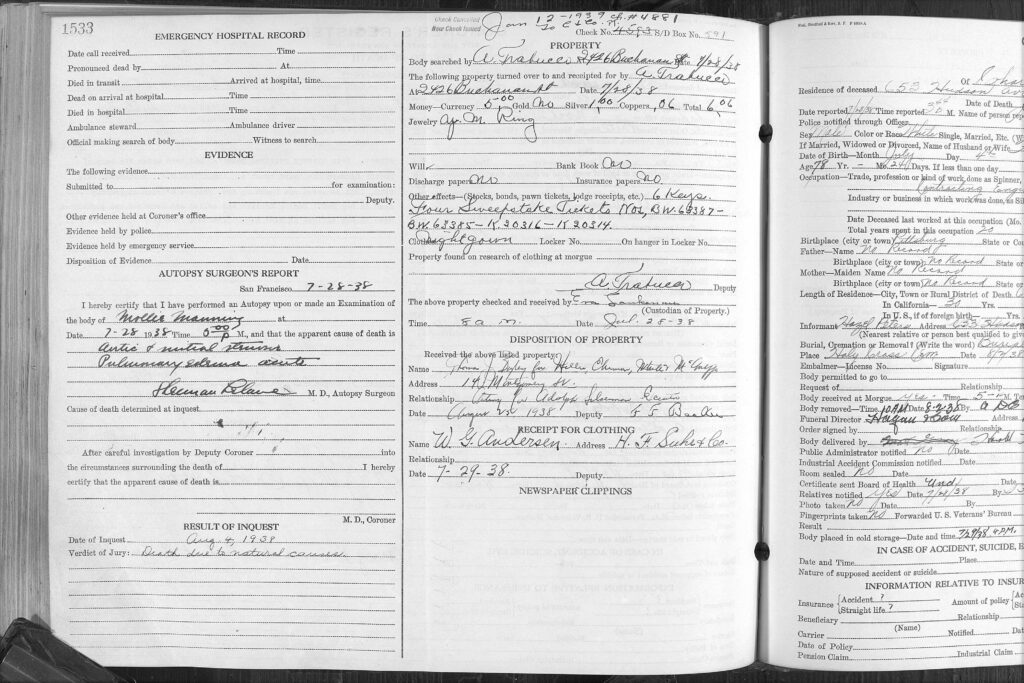 1533
EMERGENCY HOSPITAL RECORD
Date call received Time
Pronounced dead by At
Died in transit Arrived at hospital, time
Dead on arrival at hospital Time
Died in hospital Time
Ambulance steward Ambulance driver
Official making search of body Witness to search
EVIDENCE
The following evidence
Submitted to for examination:
Deputy.
Other evidence held at Coroner's office
Evidence held by police
Evidence held by emergency service
Disposition of Evidence Date
AUTOPSY SURGEON'S REPORT
San Francisco 7-28-38
I hereby certify that I have performed an Autopsy upon or made an Examination of
the body of Mollie Manning at
Date 7-28 1938 Time 5:00 P M., and that the apparent cause of death is
Aortic & mitral stenosis
Pulmonary edema acute
M. D., Autopsy Surgeon
Cause of death determined at inquest
After careful investigation by Deputy Coroner into
the circumstances surrounding the death of I hereby
certify that the apparent cause of death is
M. D., Coroner
RESULT OF INQUEST
Date of Inquest Aug. 4, 1938
Verdict of Jury: Death due to natural causes.
Check Cancelled Jan 12-1939 #4881
New Check Issued to
Check No. S/D Box No. 591
PROPERTY
Body searched by A. Trabucco 2426 Buchanan St 7/28/38
The following property turned over to and receipted for by A. Trabucco
At 2426 Buchanan St Date 7/28/38
Money—Currency 5.00 Gold No Silver 1.00 Coppers .06 Total 6.06
Jewelry Y. M. Ring
Will Bank Book
Discharge papers No Insurance papers No
Other effects—(Stocks, bonds, pawn tickets, lodge receipts, etc.) 6 Keys
Four Sweepstake Tickets Nos. BW. 63387-
BW. 63385-K 20316-K 20314.
Clothing Nightgown Locker No. On hanger in Locker No.
Property found on research of clothing at morgue
A. Trabucco Deputy
The above property checked and received by
(Custodian of Property.)
Time 8 a.m. Date Jul. 28-38
DISPOSITION OF PROPERTY
Received the above listed property: for Heller, Ehrman, White & McAuliffe
Address 14 Montgomery St.
Relationship Attny for Adolph
Date August 22 1938 Deputy
RECEIPT FOR CLOTHING
Name W. G. Andersen Address H. F. Suhr & Co.
Relationship
Date 7-29-38 Deputy
NEWSPAPER CLIPPINGS
Of
Residence of deceased 653 Hudson
Date of Death
Date reported 7/28/38 Time reported M. Name of person
Police notified through Officer
Sex Male Color or Race White Single, Married, Etc.
If Married, Widowed or Divorced, Name of Husband or Wife
Date of Birth—Month July Day 4th
Age 78 Yrs. Mo. 24 Days. If less than one day
Occupation—Trade, profession or kind of work done as Spinner,
Contracting
Industry or business in which work was done, as
Date Deceased last worked at this occupation (Mo.
Total years spent in this occupation 20
Birthplace (city or town) Pittsburg State or
Father—Name No Record
Birthplace (city or town) No Record State or
Mother—Maiden Name No Record
Birthplace (city or town) No Record State or
Length of Residence—City, Town or Rural District of Death
In California 20 Yrs.
In U. S., if of foreign birth Yrs.
Informant Hazel Peters Address 653 Hudson
(Nearest relative or person best qualified to give
Burial, Cremation or Removal? (Write the word) Burial
Place Holy Cross Cem Date 8/4/38
Embalmer—License No. Signature
Body permitted to go to
Request of Relationship
Body received at Morgue Yes. Time 5
Body removed—Time 10 AM Date 8-2-38 By
Funeral Director Address
Order signed by Relationship
Body delivered by
Public Administrator notified No Date
Industrial Accident Commission notified Date
Room sealed No Date
Certificate sent Board of Health Und Date
Relatives notified Yes Date 7/28/38 By
Photo taken No Date By
Fingerprints taken No Forwarded U. S. Veterans' Bureau
Result
Body placed in cold storage—Date and time 7/29/38 4 P.M.
IN CASE OF ACCIDENT, SUICIDE,
Date and Time Place
Nature of supposed accident or suicide
INFORMATION RELATIVE TO
Insurance Accident ? Amount of policy
Straight life ?
Beneficiary Relationship
(Name)
Carrier Notified
Date of Policy
Pension Claim Industrial Claim